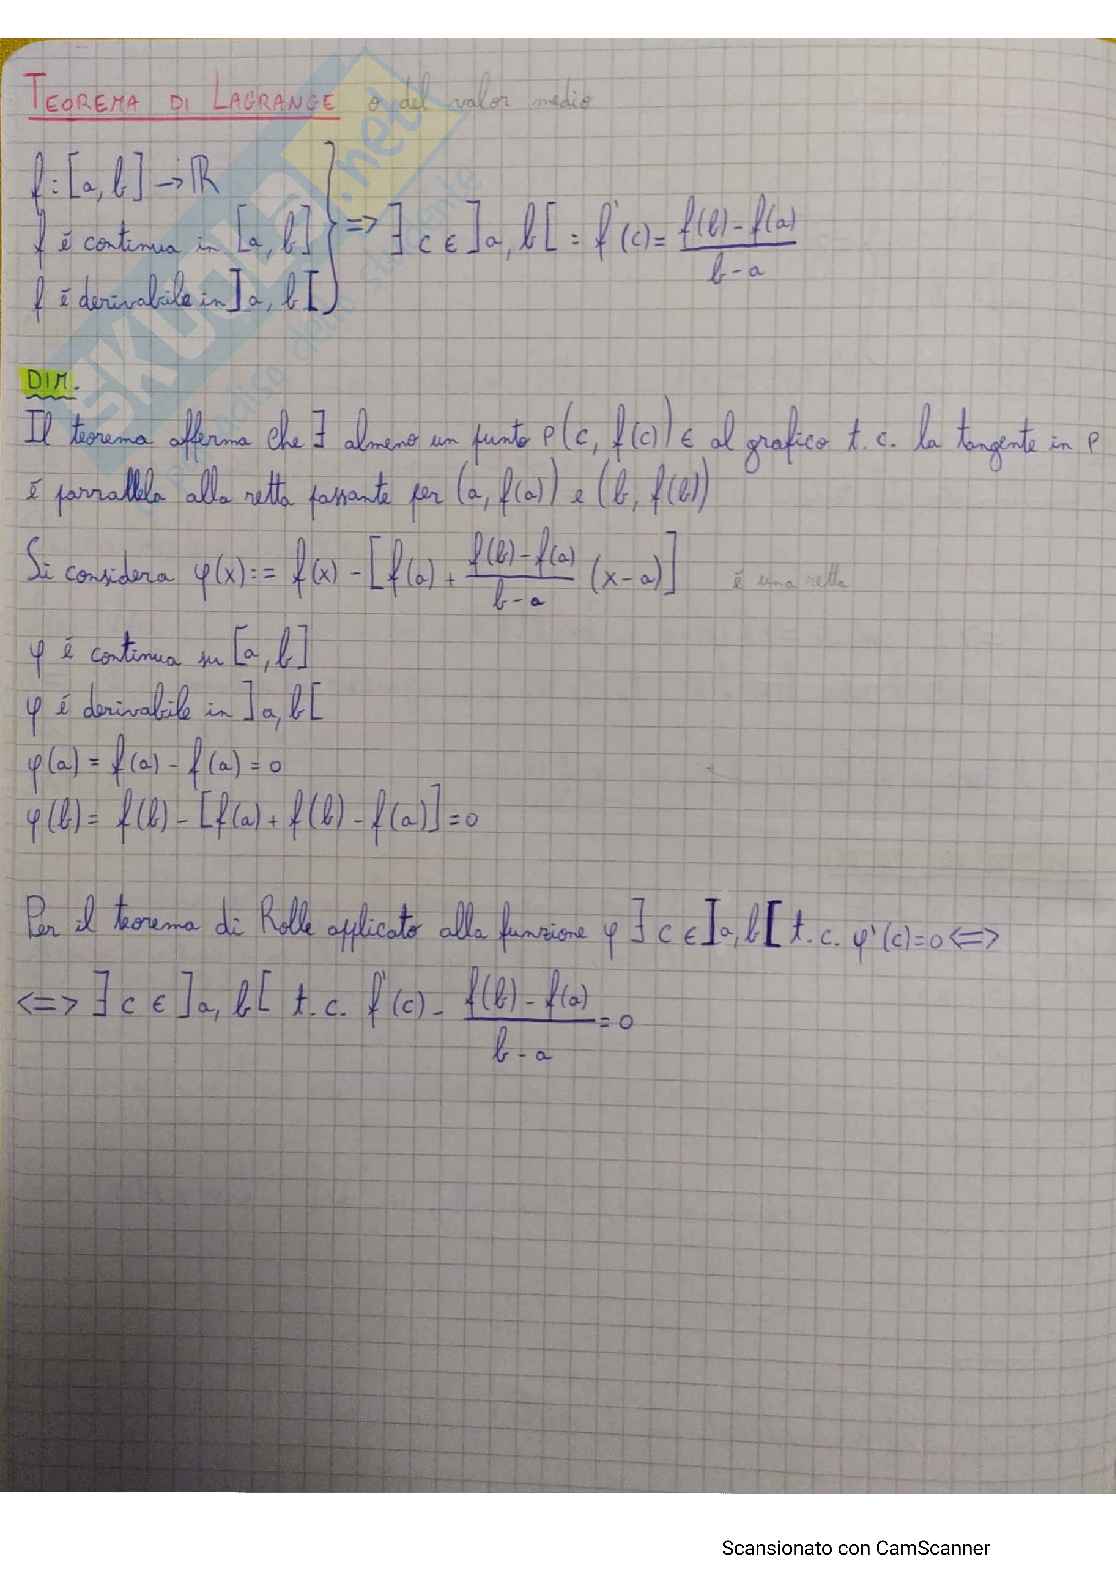 TEOREMA DI LAGRANGE o del valor medio
f: [a, b] → ℝ
f é continua in [a, b]
f é derivabile in ]a, b[
} => ∃ c ∈ ]a, b[ = f'(c) = (f(b) - f(a)) / (b - a)
DIM.
Il teorema afferma che ∃ almeno un punto P(c, f(c)) ∈ al grafico t.c. la tangente in P
é parrallela alla retta passante per (a, f(a)) e (b, f(b))
Si considera φ(x):= f(x) - [f(a) + (f(b) - f(a)) / (b - a) (x - a)] é una retta
φ é continua su [a, b]
φ é derivabile in ]a, b[
φ(a) = f(a) - f(a) = 0
φ(b) = f(b) - [f(a) + f(b) - f(a)] = 0
Per il teorema di Rolle applicato alla funzione φ ∃ c ∈ ]a, b[ t.c. φ'(c) = 0 <=>
<=> ∃ c ∈ ]a, b[ t.c. f'(c) - (f(b) - f(a)) / (b - a) = 0
SKUOLA.net
Scansionato con CamScanner